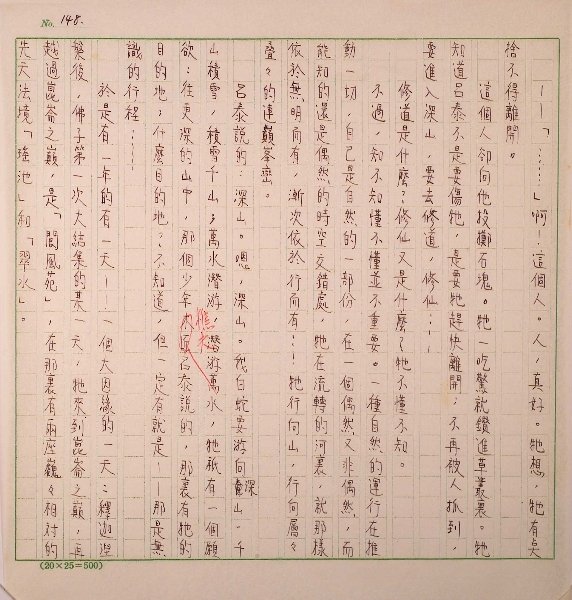 No. 148.
——「……」啊！這個人。人，真好。牠想，牠有點
捨不得離開。
這個人卻向他投擲石塊。牠一吃驚就鑽進草叢裏。牠
知道呂泰不是要傷牠，是要牠趕快離開；不再被人抓到，
要進入深山，要去修道，修仙……
修道是什麼？修仙又是什麼？牠不懂不知。
不過，知不知懂不懂並不重要。一種自然的運行在推
動一切，自己是自然的一部份，在一個偶然又非偶然，而
能知的還是偶然的時空交錯處，牠在流轉的河裏，就那樣
依於無明而有，漸次依於行而有……牠行向山，行向層々
疊々的連巔峯巒。
呂泰說的：深山。嗯，深山。我白蛇要游向深山，千
山積雪，積雪千山；萬水潛游，潛游萬水，牠祇有一個願
欲：往更深的山中，那個少年樵夫呂泰說的，那裏有牠的
目的地；什麼目的地？不知道，但一定有就是——那是無
識的行程……
於是有一年的有一天——一個大因緣的一天：釋迦涅
槃後，佛子第一次大結集的某一天，牠來到崑崙之巔，再
越過崑崙之巔，是「閬風苑」，在那裏有兩座巍々相對的
先天法境「瑤池」和「翠水」。
(20×25=500)